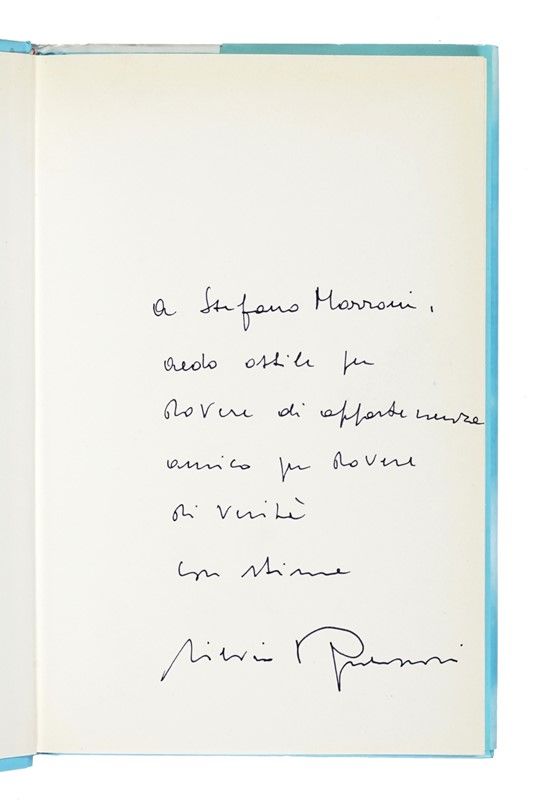 a Stefano Marroni,
credo ostile per
dovere di appartenenza
amico per dovere
di verità
con stima
Silvio